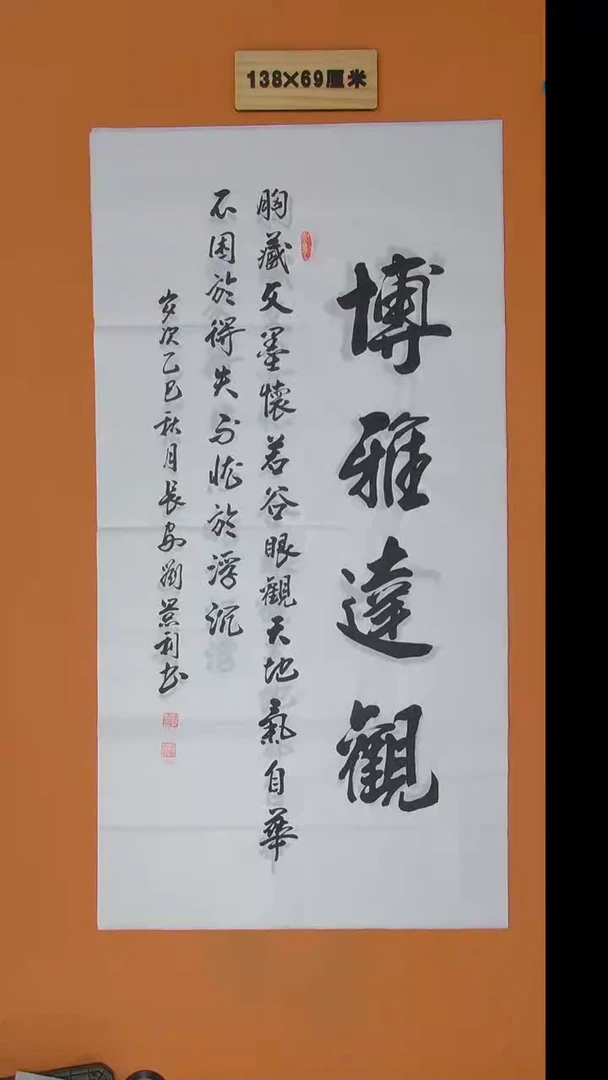 138×69厘米
博雅達觀
胸藏文墨懷若谷眼觀天地氣自華
不困於得失不忧於浮沉
岁次乙巳秋月長安劉景利书